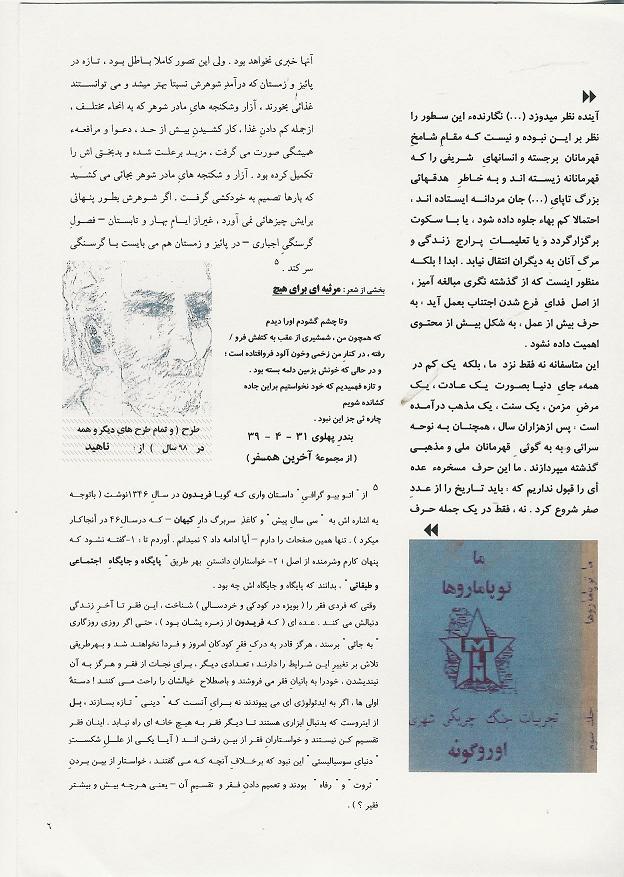 آینده نظر میدوزد (...) نگارندهء این سطور را
نظر بر این نبوده و نیست که مقام شامخِ
قهرمانان برجسته و انسانهای شریفی را که
قهرمانانه زیسته اند و به خاطر هدفهائی
بزرگ تاپایِ (...) جان مردانه ایستاده اند ،
احتمالا کم بهاء جلوه داده شود ، یا با سکوت
برگزارگردد و یا تعلیمات پرارجِ زندگی و
مرگِ آنان به دیگران انتقال نیابد . ابدا ! بلکه
منظور اینست که ازگذشته نگریِ مبالغه آمیز ،
از اصل فدایِ فرع شدن اجتناب بعمل آید ، به
حرف بیش از عمل ، به شکل بیش از محتوی
اهمیت داده نشود .
این متاسفانه نه فقط نزد ما ، بلکه یک کم در
همهء جایِ دنیا بصورت یک عادت ، یک
مرضِ مزمن ، یک سنت ، یک مذهب درآمده
است : پس ازهزاران سال ، همچنان به نوحه
سرائی و به به گوئیِ قهرمانان ملی و مذهبیِ
گذشته میپردازند . ما این حرف مسخرهء عده
أی را قبول نداریم که : باید تاریخ را از عددِ
صفر شروع کرد . نه ، فقط در یک جمله حرف
ما
توپاماروها
تجربیات جنگ چریکی شهری
اوروگوئه
ما توپاماروها
جلد سوم
آنها خبری نخواهد بود . ولی این تصور کاملا باطل بود ، تازه در
پائیز و زمستان که درآمدِ شوهرش نسبتا بهتر میشد و می توانستند
غذائی بخورند ، آزار وشکنجه هایِ مادر شوهر که به انحاء مختلف ،
ازجمله کم دادنِ غذا ، کار کشیدنِ بیش از حد ، دعوا و مرافعهء
همیشگی صورت می گرفت ، مزید برعلت شده و بدبختیِ اش را
تکمیل کرده بود . آزار و شکنجه هایِ مادر شوهر بجائی می کشید
که بارها تصمیم به خودکشی گرفت . اگر شوهرش بطور پنهانی
برایش چیزهائی نمی آورد ، غیراز ایامِ بهار و تابستان – فصولِ
گرسنگیِ اجباری – در پائیز و زمستان هم می بایست با گرسنگی
سر کند . ۵
بخشی از شعر : مرثیه ای برای هیچ
وتا چشم گشودم اورا دیدم
که همچون من ، شمشیری از عقب به کتفش فرو /
رفته ، در کنار من زخمی وخون آلود فروافتاده است ؛
و در حالی که خونش بزمین دلمه بسته بود .
و تازه فهمیدیم که خود نخواستیم براین جاده
کشانده شویم
چاره ئی جز این نبود .
بندر پهلوی ۳۱ - ۴ - ۳۹
( از مجموعهٔ آخرین همسفر )
طرح ( و تمام طرح های دیگر و همه
در ۹۸ سال ) از : ناهید
۵ از " اتو بیو گرافیِ " داستان واری که گویا فریدون در سالِ ۱۳۴۶نوشت ( باتوجه
به اشاره اش به " سی سالِ پیش " و کاغذِ سربرگ دارِ کیهان – که درسالِ۴۶ در آنجاکار
میکرد ) . تنها همین صفحات را دارم – آیا ادامه داد ؟ نمیدانم . آوردم تا : ۱-گفته نشود که
پنهان کارم وشرمنده از اصل ؛ ۲- خواستارانِ دانستن بهر طریق " پایگاه و جایگاهِ اجتماعی
و طبقاتی " ، بدانند که پایگاه و جایگاه اش چه بود .
وقتی که فردی فقر را ( بویژه در کودکی و خردسالی ) شناخت ، این فقر تا آخرِ زندگی
دنبالش می کند . عده ای ( که فریدون از زمره یشان بود ) ، حتی اگر روزی روزگاری
" به جائی " برسند ، هرگز قادر به درکِ فقرِ کودکان امروز و فردا نخواهند شد و بهرطریقی
تلاش بر تغییرِ این شرایط را دارند ؛ تعدادی دیگر ، برایِ نجات از فقر و هرگز به آن
نیندیشدن ، خودرا به بانیانِ فقر می فروشند و باصطلاح خیالشان را راحت می کنند ! دستهٔ
اولی ها ، اگر به ایدئولوژی ای می پیوندند نه برایِ آنست که " دینی " تازه بسازند ، بل
از اینروست که بدنبالِ ابزاری هستند تا دیگر فقر به هیچ خانه ای راه نیابد . اینان فقر
تقسیم کن نیستند و خواستارانِ فقر از بین رفتن اند ( آیا یکی از عللِ شکستِ
" دنیای سوسیالیستی " این نبود که برخلافِ آنچه که می گفتند ، خواستارِ از بین بردنِ
" ثروت " و " رفاه " بودند و تعمیم دادنِ فقر و تقسیمِ آن – یعنی هرچه بیش و بیشتر
فقیر ؟ ) .
۶